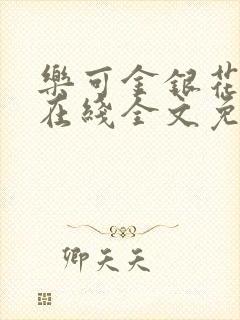 樂可金銀花
在綫全文免
卿天天